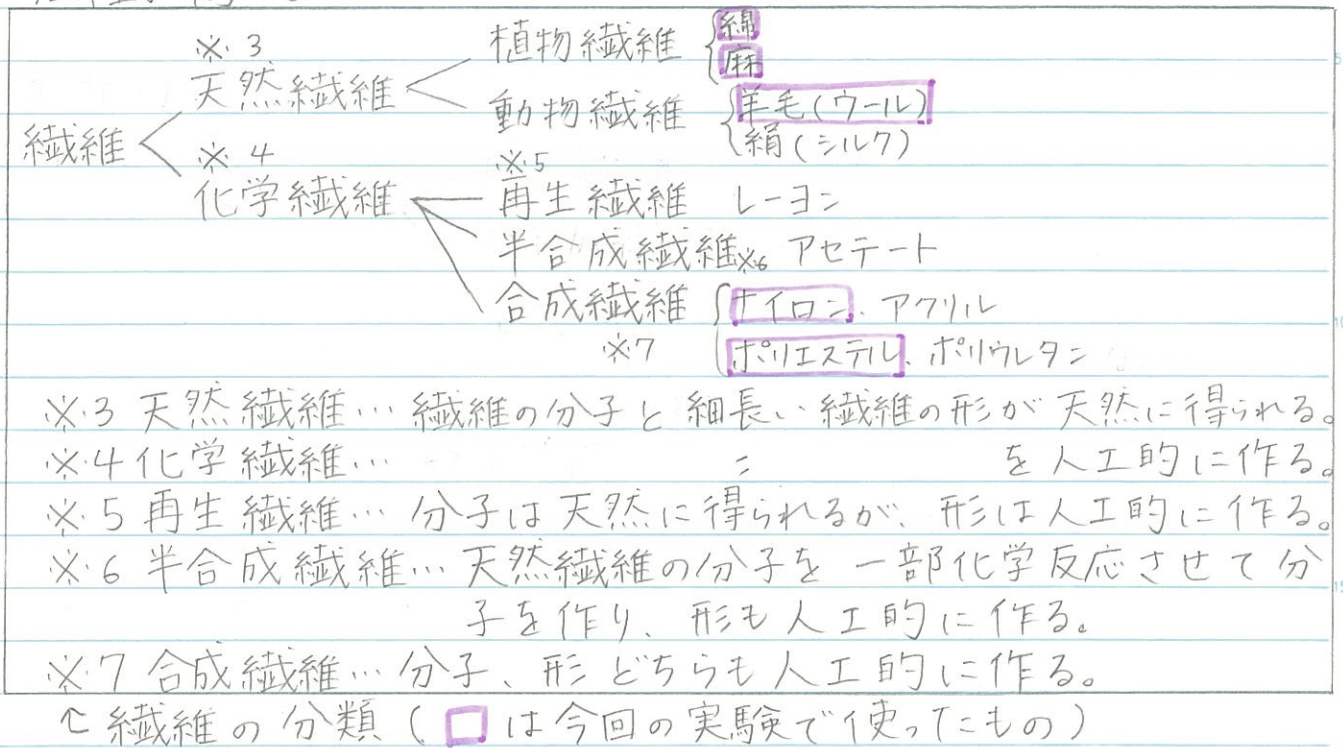 ※3
天然繊維
植物繊維
綿
麻
動物繊維
羊毛(ウール)
絹(シルク)
繊維
※4
化学繊維
※5
再生繊維 レーヨン
半合成繊維※6 アセテート
合成繊維 ナイロン、アクリル
※7 ポリエステル、ポリウレタン
※3 天然繊維…繊維の分子と細長い繊維の形が天然に得られる。
※4 化学繊維… 〃 を人工的に作る。
※5 再生繊維…分子は天然に得られるが、形は人工的に作る。
※6 半合成繊維…天然繊維の分子を一部化学反応させて分
子を作り、形も人工的に作る。
※7 合成繊維…分子、形どちらも人工的に作る。
↑繊維の分類(□は今回の実験で使ったもの)
5
10
15